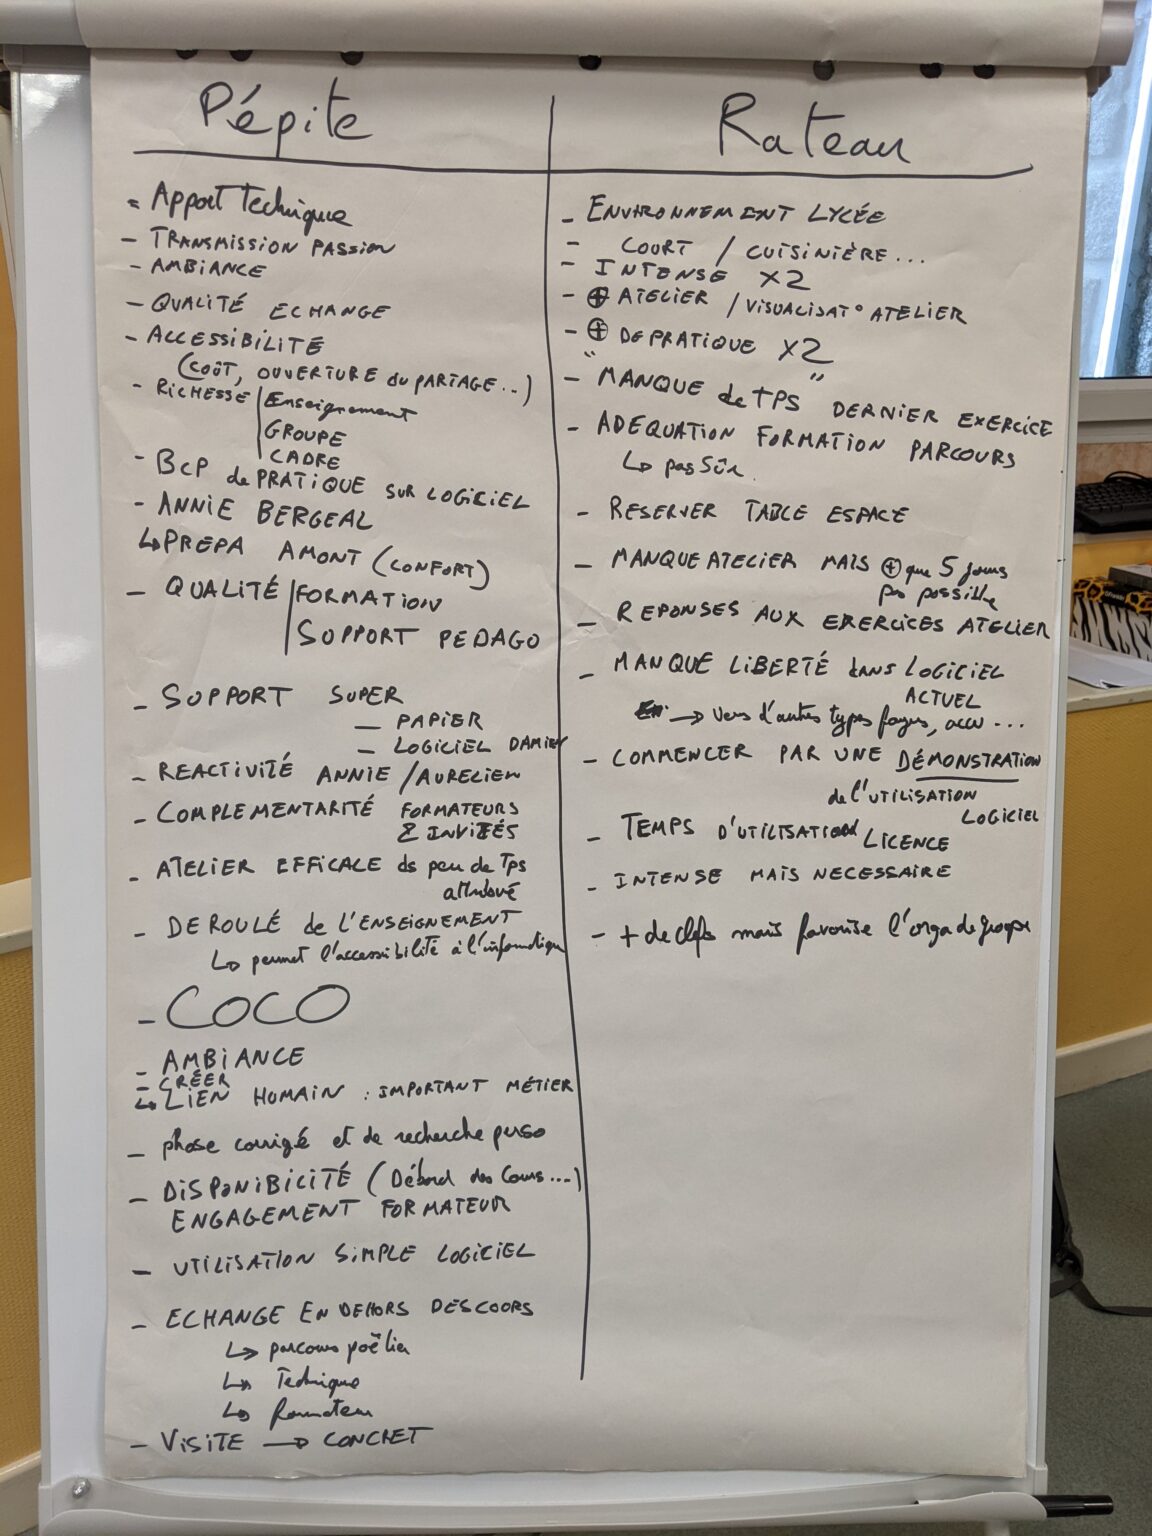 Pépite
- Apport Technique
- TRANSMISSION PASSION
- AMBIANCE
- QUALITÉ ECHANGE
- ACCESSIBILITÉ
(COÛT, OUVERTURE du PARTAGE...)
- RICHESSE Enseignement
GROUPE
CADRE
- BCP de PRATIQUE SUR LOGICIEL
- ANNIE BERGEAL
↳ PREPA AMONT (CONFORT)
- QUALITÉ FORMATION
SUPPORT PEDAGO
- SUPPORT SUPER
- PAPIER
- LOGICIEL DAMIEN
- REACTIVITÉ ANNIE / AURELIEN
- COMPLEMENTARITÉ FORMATEURS
& INVITÉS
- ATELIER EFFICALE ds peu de Tps
attribué
- DEROULÉ de L'ENSEIGNEMENT
↳ permet l'accessibilité à l'informatique
- COCO
- AMBIANCE
- CRÉER
↳ LIEN HUMAIN : IMPORTANT MÉTIER
- phase corrigé et de recherche perso
- DISPONIBILITÉ (Débord des Cours...)
ENGAGEMENT FORMATEUR
- UTILISATION SIMPLE LOGICIEL
- ECHANGE EN DEHORS DES COORS
↳ parcours poêlier
↳ Technique
↳ formateur
- VISITE → CONCRET
Rateau
- ENVIRONNEMENT LYCÉE
- COURT / CUISINIÈRE...
- INTENSE X2
- ⊕ ATELIER / VISUALISAT° ATELIER
- ⊕ DE PRATIQUE X2
- "MANQUE de TPS" DERNIER EXERCICE
- ADEQUATION FORMATION PARCOURS
↳ pas Sûr
- RESERVER TABLE ESPACE
- MANQUE ATELIER MAIS ⊕ que 5 jours
pas possible
- REPONSES AUX EXERCICES ATELIER
- MANQUE LIBERTÉ dans LOGICIEL
ACTUEL
→ vers d'autres types foyers, accu ...
- COMMENCER PAR UNE DÉMONSTRATION
de l'UTILISATION
LOGICIEL
- TEMPS D'UTILISATION LICENCE
- INTENSE MAIS NECESSAIRE
- + de clefs mais favorise l'orga de groupe